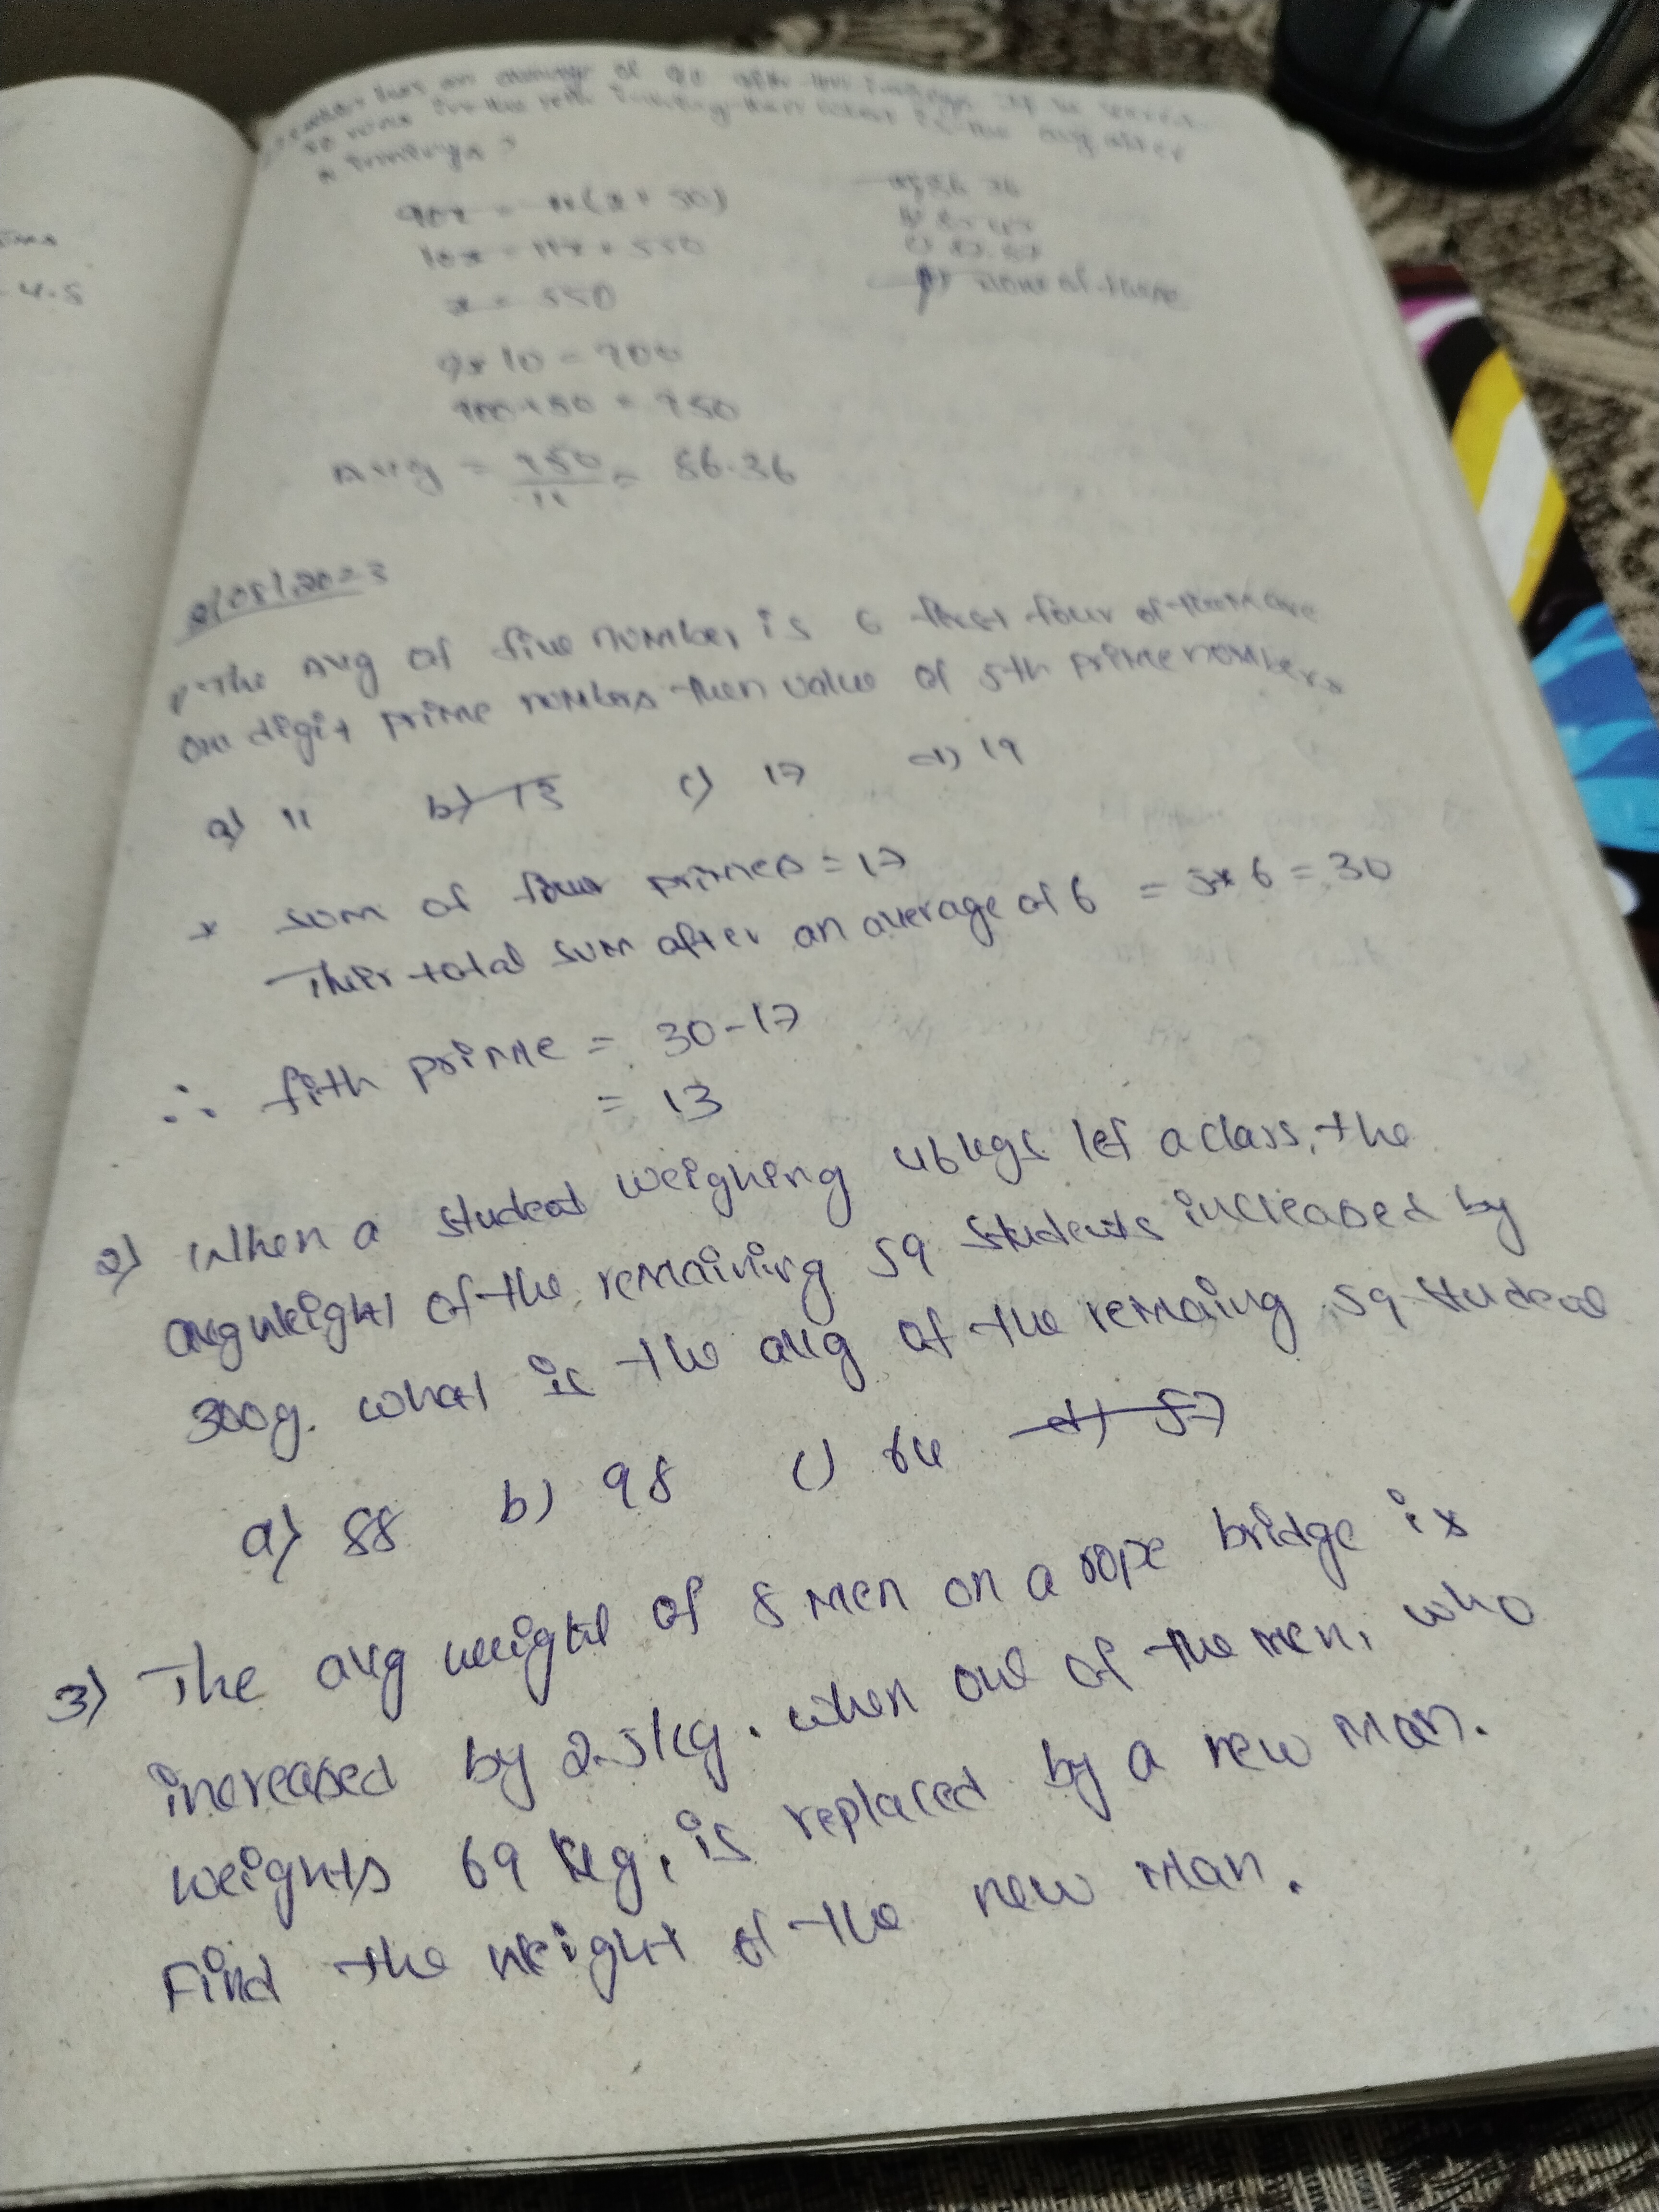 4.5
an average of 90
50 runs for the then what is the avg after
innings?
90x = 11(x + 50)
10x = 11x + 550
x = 550
9 x 10 = 900
900+50 = 950
Avg = 950/11 = 86.36
a) 86.36
d) none of these
2/08/2023
1) The Avg of five number is 6 first four of them are
one digit prime numbers then value of 5th prime numbers
a) 11 b) 13 c) 17 d) 19
* sum of four primes = 17
Their total sum after an average of 6 = 5*6 = 30
∴ fith prime = 30-17
= 13
2) When a student weighing 46 kgs lef a class, the
avg weight of the remaining 59 students increased by
300g. what is the avg of the remaing 59 student
a) 88 b) 98 c) 64 d) 57
3) The avg weight of 8 men on a rope bridge is
increased by 2.5kg. when one of the men, who
weights 69 kg, is replaced by a new man.
Find the weight of the new man.